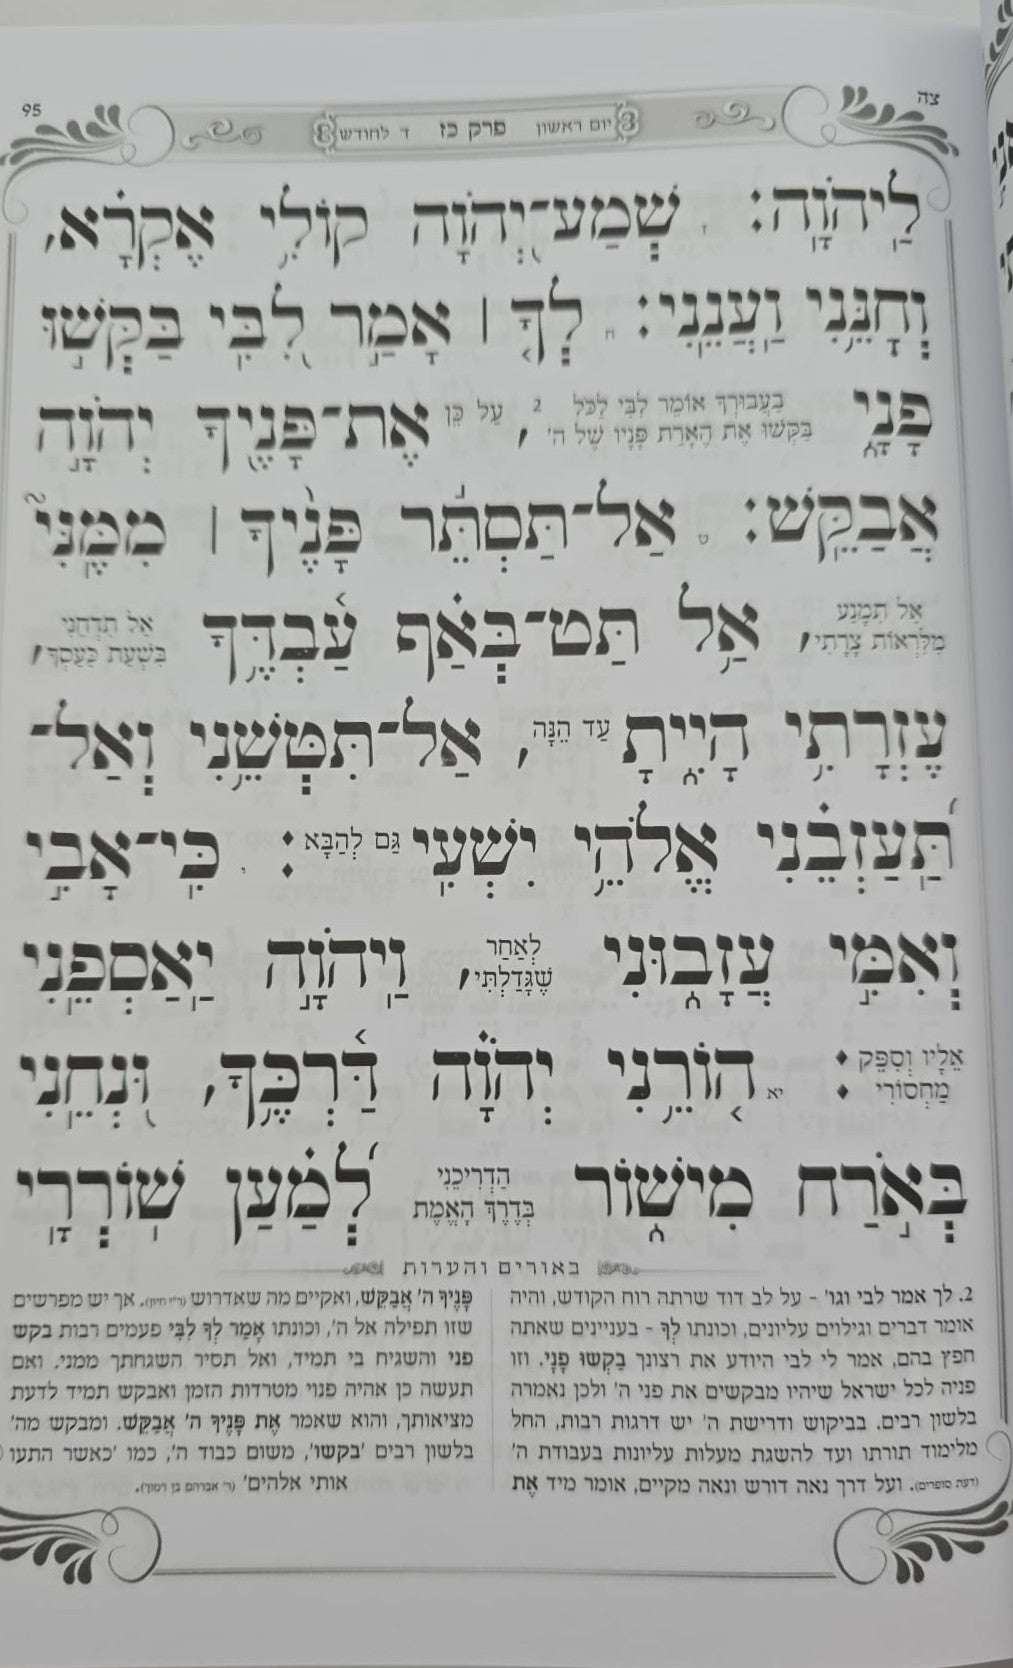 95 יום ראשון פרק כז ד לחודש צה
לַיהֹוָֽה׃ ז שְׁמַע־יְהֹוָ֖ה קוֹלִ֥י אֶקְרָ֗א,
וְחׇנֵּ֥נִי וַעֲנֵֽנִי׃ ח לְךָ֤ ׀ אָמַ֣ר לִ֭בִּי בַּקְּשׁ֣וּ
פָנָ֑י בַּעֲבוּרְךָ אוֹמֵר לְבִּי לְכֹל 2, עַל כֵּן אֶת־פָּנֶ֖יךָ יְהֹוָ֣ה
בַּקְּשׁוּ אֶת הֶאָרַת פָּנָיו שֶׁל ה'
אֲבַקֵּֽשׁ׃ ט אַל־תַּסְתֵּ֬ר פָּנֶ֨יךָ ׀ מִמֶּנִּי֮
אַל תִּמָנַע אַ֥ל תַּט־בְּאַ֗ף עַ֫בְדֶּ֥ךָ אַל תִּדְחַנִי
מִלִּרְאוֹת צָרָתִי, בִּשְׁעַת כַּעַסְךָ,
עֶזְרָתִ֥י הָיִ֑יתָ עַד הֵנָּה, אַל־תִּטְּשֵׁ֥נִי וְאַל־
תַּ֝עַזְבֵ֗נִי אֱלֹהֵ֥י יִשְׁעִֽי גַּם לְהַבָּא ׃ י כִּי־אָבִ֣י
וְאִמִּ֣י עֲזָב֑וּנִי לְאַחַר וַֽיהֹוָ֣ה יַאַסְפֵֽנִי
שֶׁגָּדַלְתִּי,
אֵלָיו וְסִפֵּק ׃ יא ה֤וֹרֵ֥נִי יְהֹוָ֗ה דַּ֫רְכֶּ֥ךָ, וּ֭נְחֵנִי
מַחְסוֹרִי
בְּאֹ֣רַח מִישׁ֑וֹר הַדְרִיכֵנִי לְ֝מַ֗עַן שֽׁוֹרְרָֽי
בְּדֶרֶךְ הָאֱמֶת
באורים והערות
2. לך אמר לבי וגו' - על לב דוד שרתה רוח הקודש, והיה
אומר דברים וגילוים עליונים, וכונתו לְךָ - בעניינים שאתה
חפץ בהם, אמר לי לבי היודע את רצונך בַקְשׁוּ פָנָי. וזו
פניה לכל ישראל שיהיו מבקשים את פני ה' ולכן נאמרה
בלשון רבים. בביקוש ודרישת ה' יש דרגות רבות, החל
מלימוד תורתו ועד להשגת מעלות עליונות בעבודת ה'
(דעת סופרים). ועל דרך נאה דורש ונאה מקיים, אומר מיד אֶת
פָּנֶיךָ ה' אֲבַקֵּשׁ, ואקיים מה שאדרוש (ר"י חיון). אך יש מפרשים
שזו תפילה אל ה', וכונתו אָמַר לְךָ לִבִּי פעמים רבות בקש
פני והשגיח בי תמיד, ואל תסיר השגחתך ממני. ואם
תעשה כן אהיה פנוי מטרדות הזמן ואבקש תמיד לדעת
מציאותך, והוא שאמר אֶת פָּנֶיךָ ה' אֲבַקֵּשׁ. ומבקש מה'
בלשון רבים 'בקשו', משום כבוד ה', כמו 'כאשר התעו
אותי אלהים' (ר' אברהם בן רמוך).